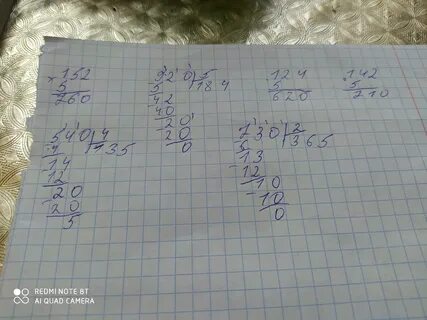 ×152 920|5 ×124 ×142
5 5 184 5 5
760 42 620 710
40
20
20
0
540|4 730|2
4 135 6 365
14 13
12 12
20 10
20 10
5 0
0
REDMI NOTE 8T
AI QUAD CAMERA